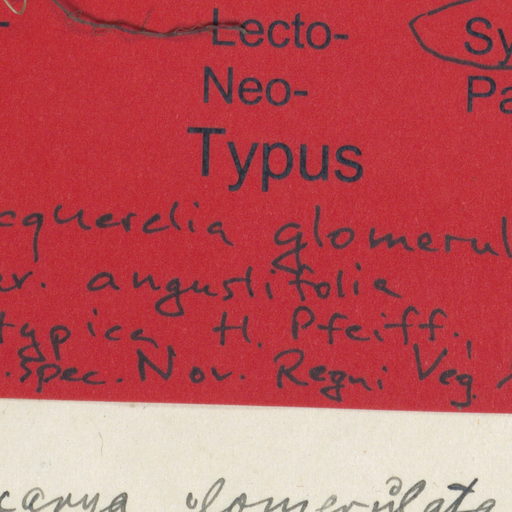 Lecto- Sy
Neo- Pa
Typus
cquerelia glomerul
er. angustifolia
typica H. Pfeiff.,
.spec. Nov. Regni Veg.
carya glomerulata